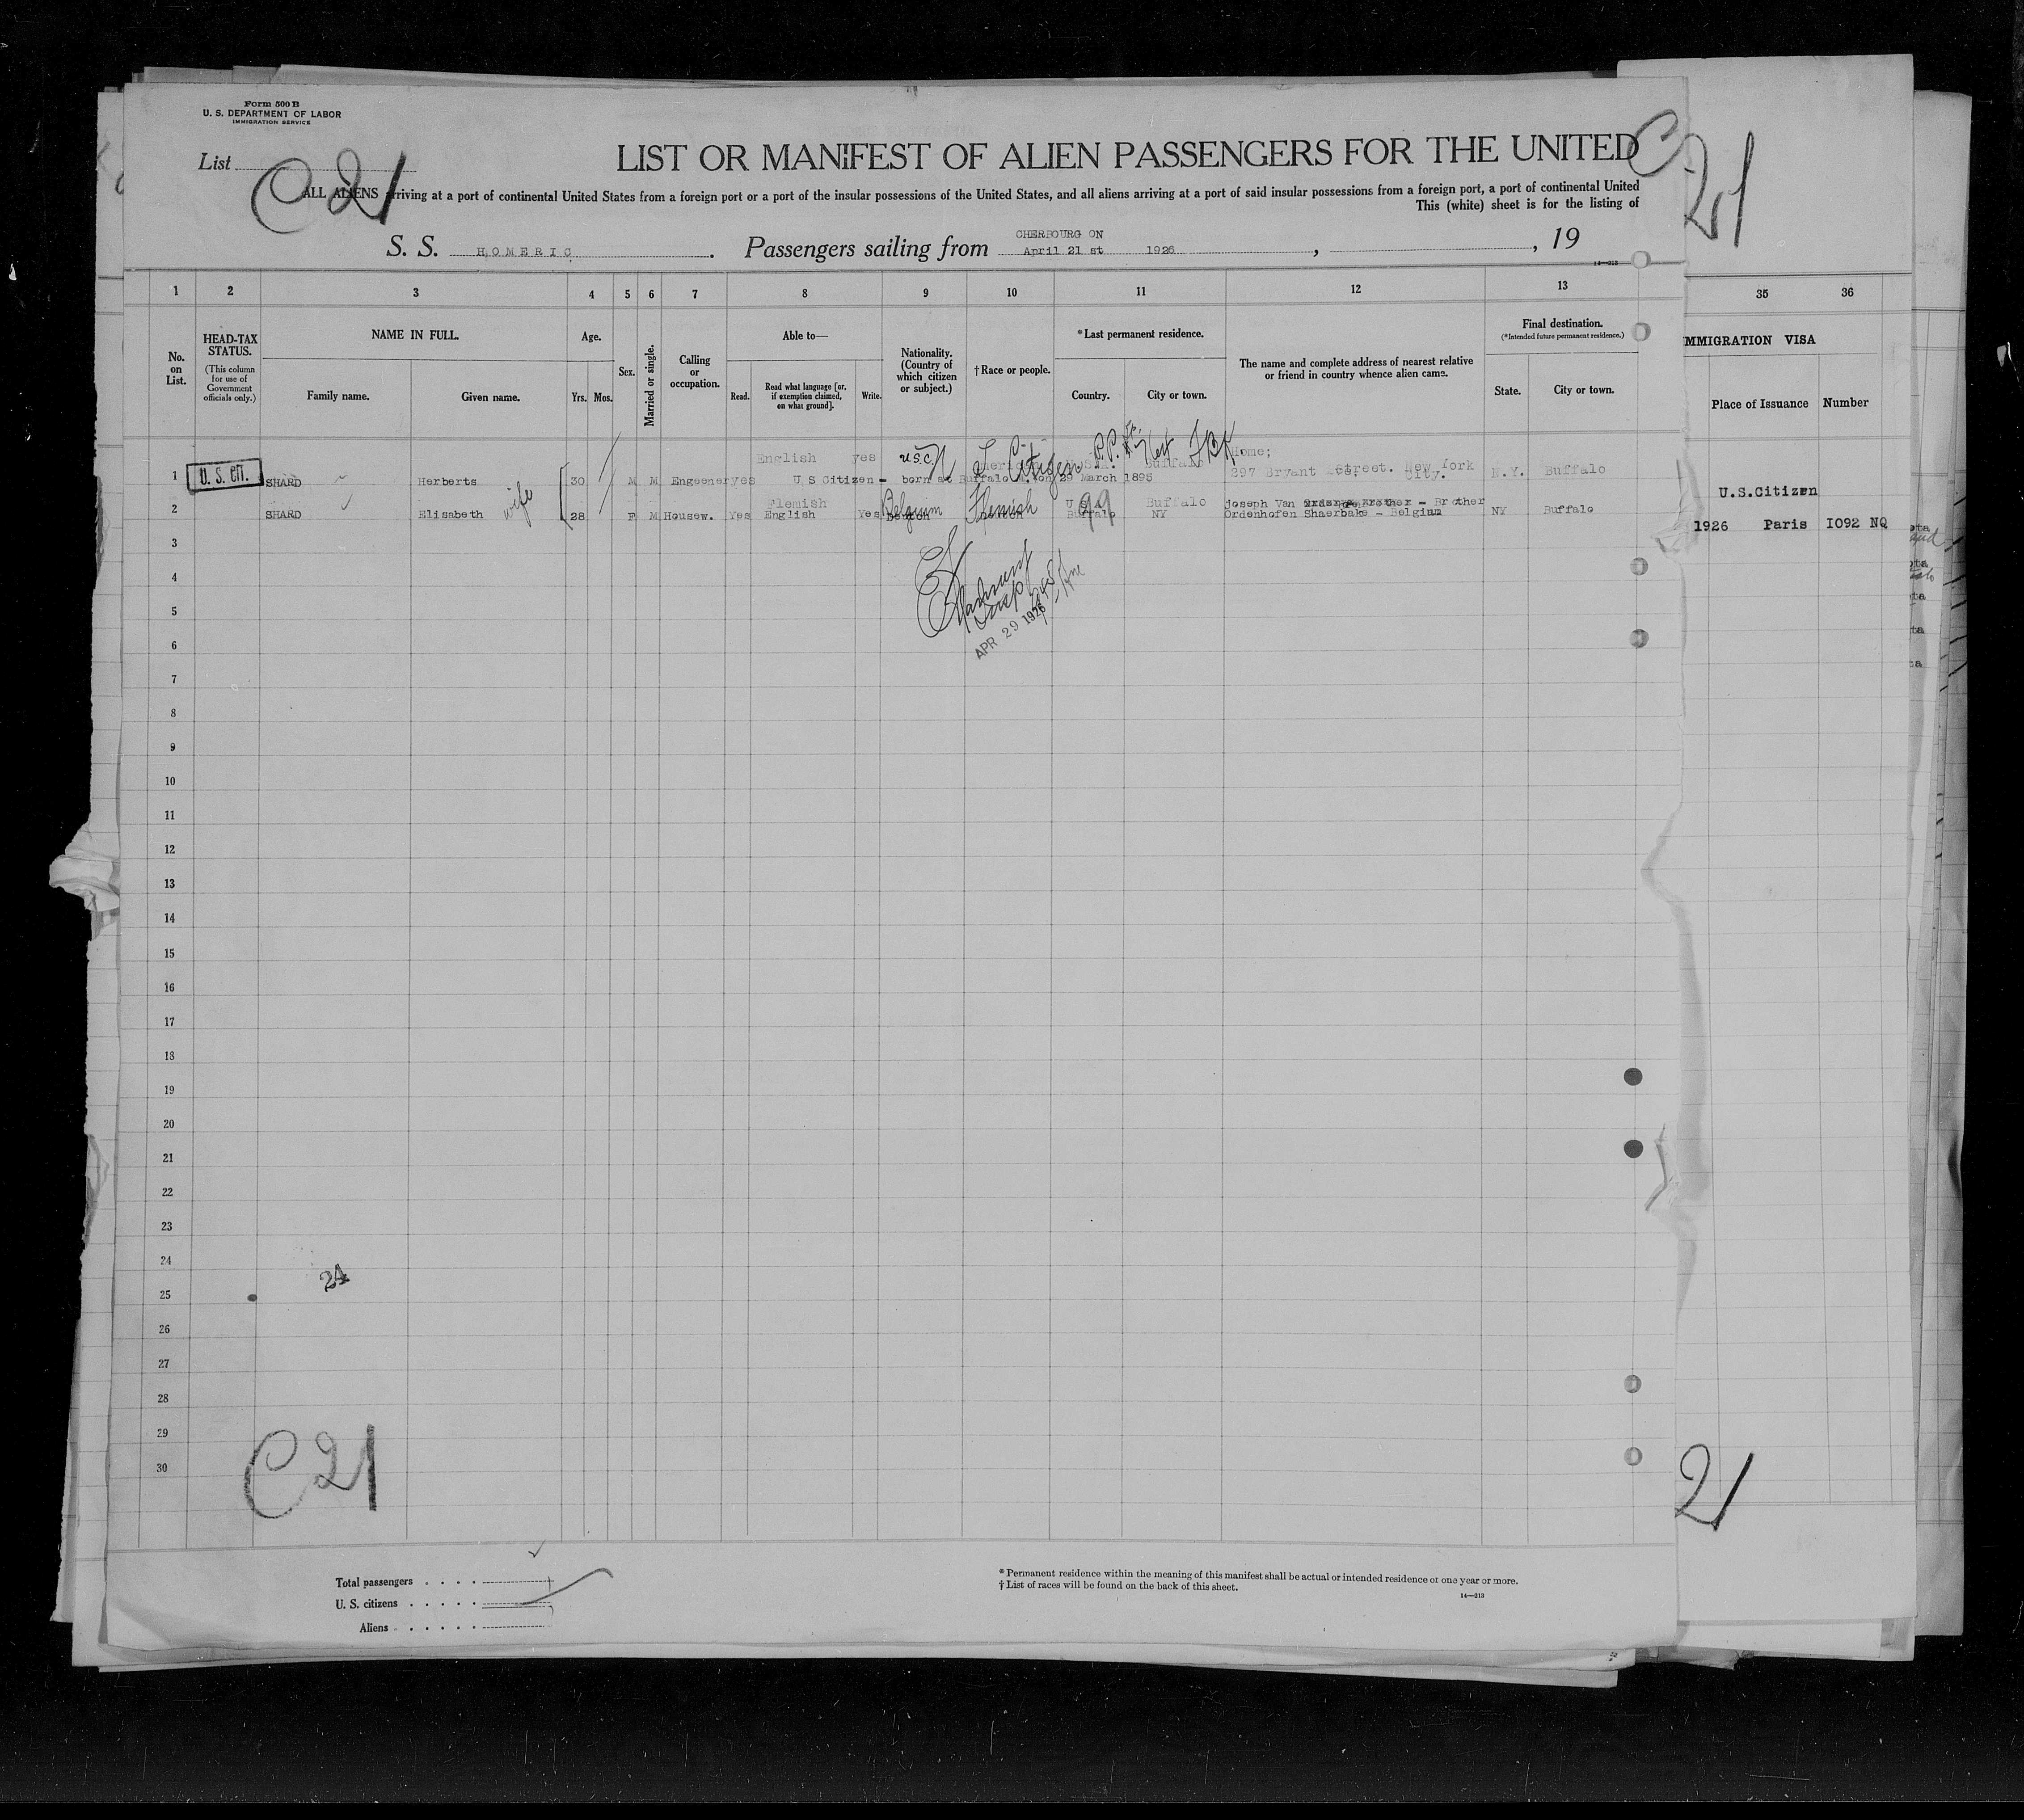 Form 500 B
U. S. DEPARTMENT OF LABOR
IMMIGRATION SERVICE
List C 21
LIST OR MANIFEST OF ALIEN PASSENGERS FOR THE UNITED
C 21
ALL ALIENS arriving at a port of continental United States from a foreign port or a port of the insular possessions of the United States, and all aliens arriving at a port of said insular possessions from a foreign port, a port of continental United
This (white) sheet is for the listing of
S. S. HOMERIC. Passengers sailing from CHERBOURG ON April 21 st 1926, , 19
14—213
1 2 3 4 5 6 7 8 9 10 11 12 13 35 36
No. on List.
HEAD-TAX STATUS.
(This column for use of Government officials only.)
NAME IN FULL.
Family name. Given name.
Age.
Yrs. Mos.
Sex.
Married or single.
Calling or occupation.
Able to—
Read. Read what language [or, if exemption claimed, on what ground]. Write.
Nationality. (Country of which citizen or subject.)
† Race or people.
* Last permanent residence.
Country. City or town.
The name and complete address of nearest relative or friend in country whence alien came.
Final destination.
(*Intended future permanent residence.)
State. City or town.
MMIGRATION VISA
Place of Issuance Number
English yes U.S.C. U S Citizen Buffalo Home;
1 U.S. cit. SHARD Herberts 30 M M Engeener yes U S Citizen - born at Buffalo on 29 March 1895 297 Bryant Street. New York City. N.Y. Buffalo
U.S.Citizen
Flemish Belgium Flemish U S A Buffalo Joseph Van - Brother
2 SHARD Elisabeth wife 28 F M Housew. Yes English Yes 99 Buffalo NY Ordenhofen Shaerbake - Belgium NY Buffalo
1926 Paris I092 NQ
3
4
5
APR 29 1926
6
7
8
9
10
11
12
13
14
15
16
17
18
19
20
21
22
23
24
24
25
26
27
28
29
30
C 21
21
Total passengers
U. S. citizens
Aliens
* Permanent residence within the meaning of this manifest shall be actual or intended residence of one year or more.
† List of races will be found on the back of this sheet.
14—213